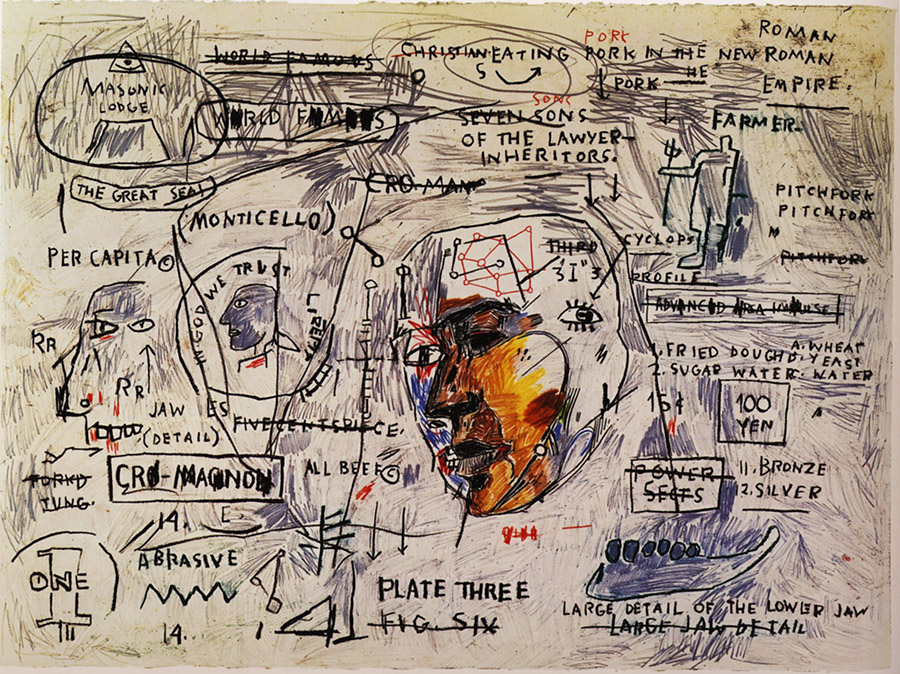 WORLD FAMOUS
MASONIC
LODGE
WORLD FAMOUS
THE GREAT SEAL
CHRISTIAN EATING
S
PORK
PORK IN THE NEW ROMAN
PORK THE
ROMAN
EMPIRE.
SONS
SEVEN SONS
OF THE LAWYER
INHERITORS.
FARMER.
CRO-MAN
(MONTICELLO)
PER CAPITA
IN GOD WE TRUST
THIRD
"I"
CYCLOPS
PROFILE
PITCHFORK
PITCHFORK
PITCHFORK
1. FRIED DOUGH
2. SUGAR WATER. WATER
A. WHEAT
YEAST
15¢
100
YEN
RR
RR
JAW
(DETAIL)
ES
FIVE CENTS PIECE.
CRO-MAGNON
E.
ALL BEEF
POWER
SESTS
11. BRONZE
2. SILVER
14.
ONE
ABRASIVE
14.
PLATE THREE
FIG. SIX
LARGE DETAIL OF THE LOWER JAW
LARGE JAW DETAIL